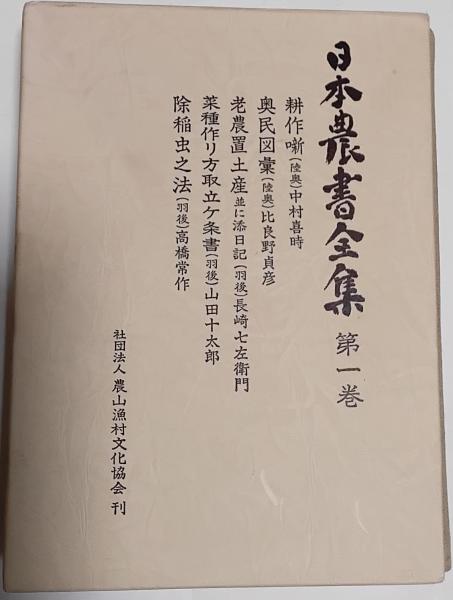 日本農書全集 第一巻
耕作噺(陸奥)中村喜時
奥民図彙(陸奥)比良野貞彦
老農置土産並に添日記(羽後)長崎七左衛門
菜種作リ方取立ケ条書(羽後)山田十太郎
除稲虫之法(羽後)高橋常作
社団法人 農山漁村文化協会 刊